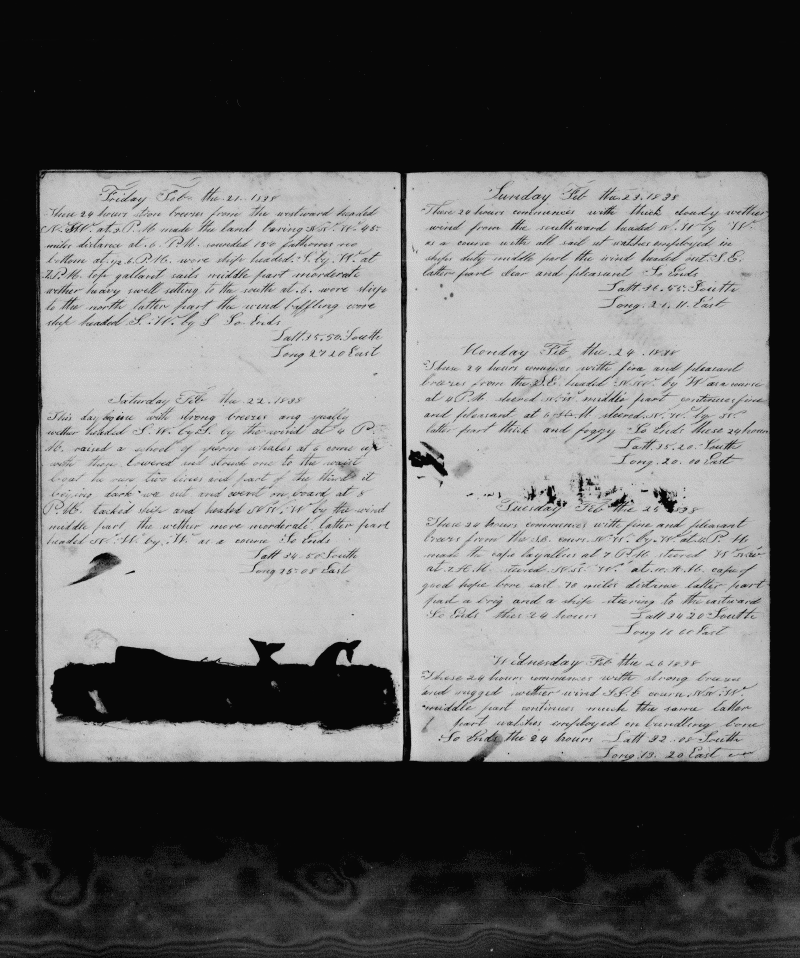 Friday Feb the 21. 1838
These 24 hours stron breezes from the westward headed
N. at 2 P.M made the land baring N.N.W. 45
miles distance at 6 P.M. sounded 150 fathoms no
bottom at 1/2 6. P.M. wore ship headed S. by W. at
P.M. top gallant sails middle part morderate
wether heavy swell setting to the south at 6. wore ship
to the north latter part the wind baffling wore
ship headed S. W. by S So Ends
Latt. 35.50 South
Long 27 20 East
Saturday Feb the 22. 1838
This day begins with strong breezes and squally
wether headed S.W. by S. by the wind at 4 P.
M. raised a school of sperm whales at 6 come up
with them lowered and struck one to the waist
boat he run two lines and part of the third it
being dark we cut and went on board at 8
P.M. tacked ship and headed by the wind
middle part the wether more morderate latter part
headed by W. as a course So Ends
Latt 34-50 South
Long 25-08 East
Sunday Feb the 23. 1838
These 24 hours commences with thick cloudy wether
wind from the southward headed by W.
as a course with all sail set watches employed in
ships duty middle part the wind headed out S.E.
latter part clear and pleasant So Ends
Latt. 34-55 South
Long. 21. 11. East
Monday Feb the 24. 1838
These 24 hours comences with fine and pleasant
breezes from the S.E. headed by W as a course
at 4 P.M. steered middle part continues fine
and pleasant at 6 A.M steered N. W. by
latter part thick and foggy So Ends these 24 hours
Latt 35.20 South
Long. 20. 00 East
Tuesday Feb the 25 1838
These 24 hours commences with fine and pleasant
breezes from the S.E. cours N.W. by W. at 4 P. M
made the cape at 7 P.M. steered W
at 2 A.M. steered at A.M. cape of
good hope bore east 70 miles distance latter part
past a brig and a ship steering to the eastward
So Ends thes 24 hours Latt 34 20 South
Long 16 00 East
Wednesday Feb the 26 1838
These 24 hours commances with strong breezes
and rugged wether wind S.S.E course N.W.
middle part continues much the same latter
part watches employed on bundling bone
So Ends the 24 hours Latt 32-08 South
Long 13. 20 East